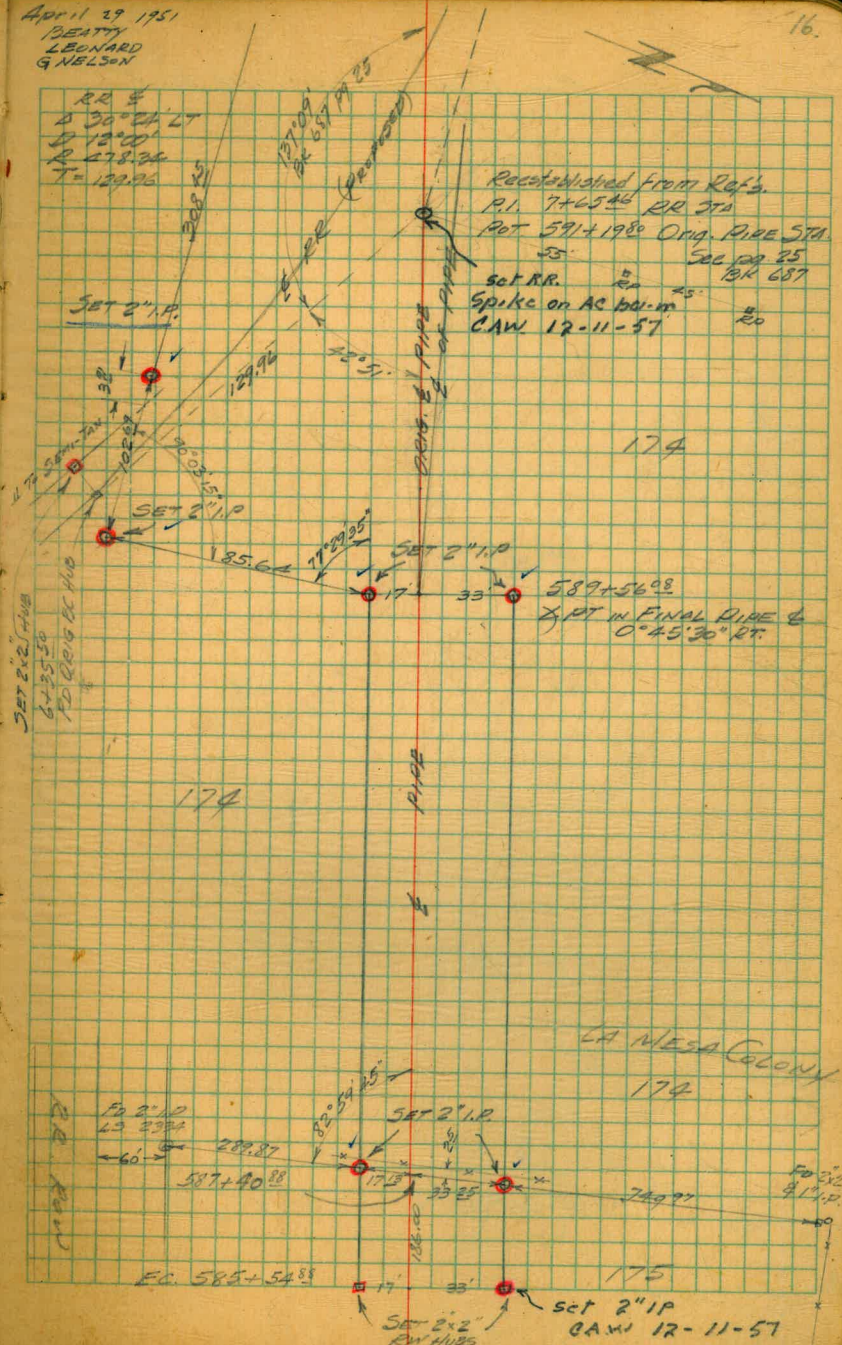 April 29 1951
BEATTY
LEONARD
G NELSON
16.
RR ℄
Δ 30°24' LT
D 12°00'
R 478.34
T= 129.96
308.45
137°09'
BK 687 PG 25
℄ RR (PROPOSED)
Reestablished From Ref's.
P.I. 7+65.46 RR STA
POT 591+19.80 Orig. PIPE STA.
See pg 25
BK 687
set RR.
Spike on AC
CAW. 12-11-57
SET 2" I.P.
38
129.96
42°51'
ORIG. ℄ PIPE
℄ OF PIPE
102.69
90°03'15"
SEMI-TAN
174
SET 2" I.P
85.64
77°29'35"
SET 2" I.P
17'
33'
589+56.08
PT IN FINAL PIPE ℄
0°45'30" RT.
SET 2"x2" HUB
6+35.50
FD ORIG BC HUB
174
℄ PIPE
LA MESA COLONY
174
82°54'25"
SET 2" I.P.
FD 2" I.P
LS 2334
60'
289.87
587+40.88
25
33.25
749.97
186.00
RR ROW
E.C. 585+54.88
17'
33'
175
SET 2"x2"
RW HUBS
set 2" IP
CAW 12-11-57